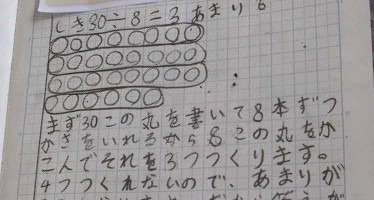 しき30÷8=3 あまり6
まず30この丸を書いて8本ずつ
かさをいれるから8この丸をか
こんでそれを3つつくります。
4つつくれないので、あまりが